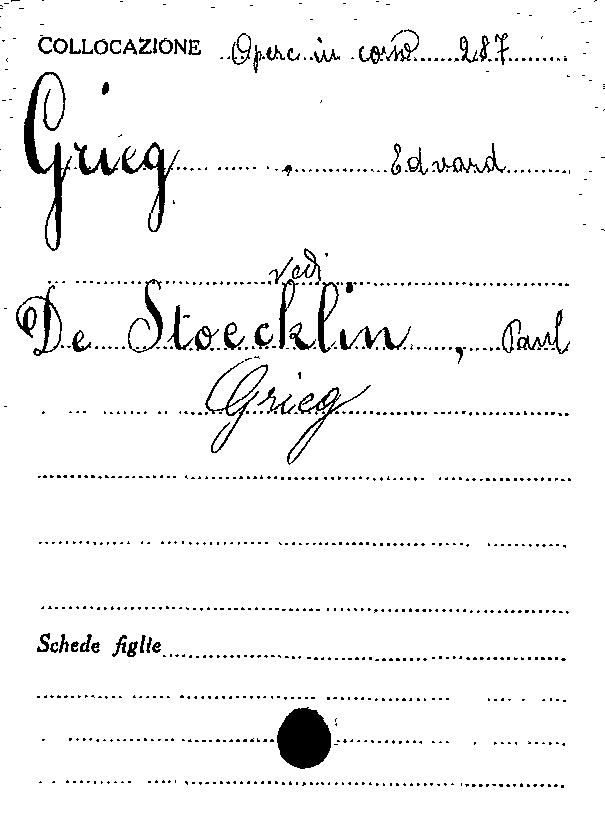 COLLOCAZIONE Opere in corso 287
Grieg , Edvard
vedi
De Stoecklin , Paul
Grieg
Schede figlie